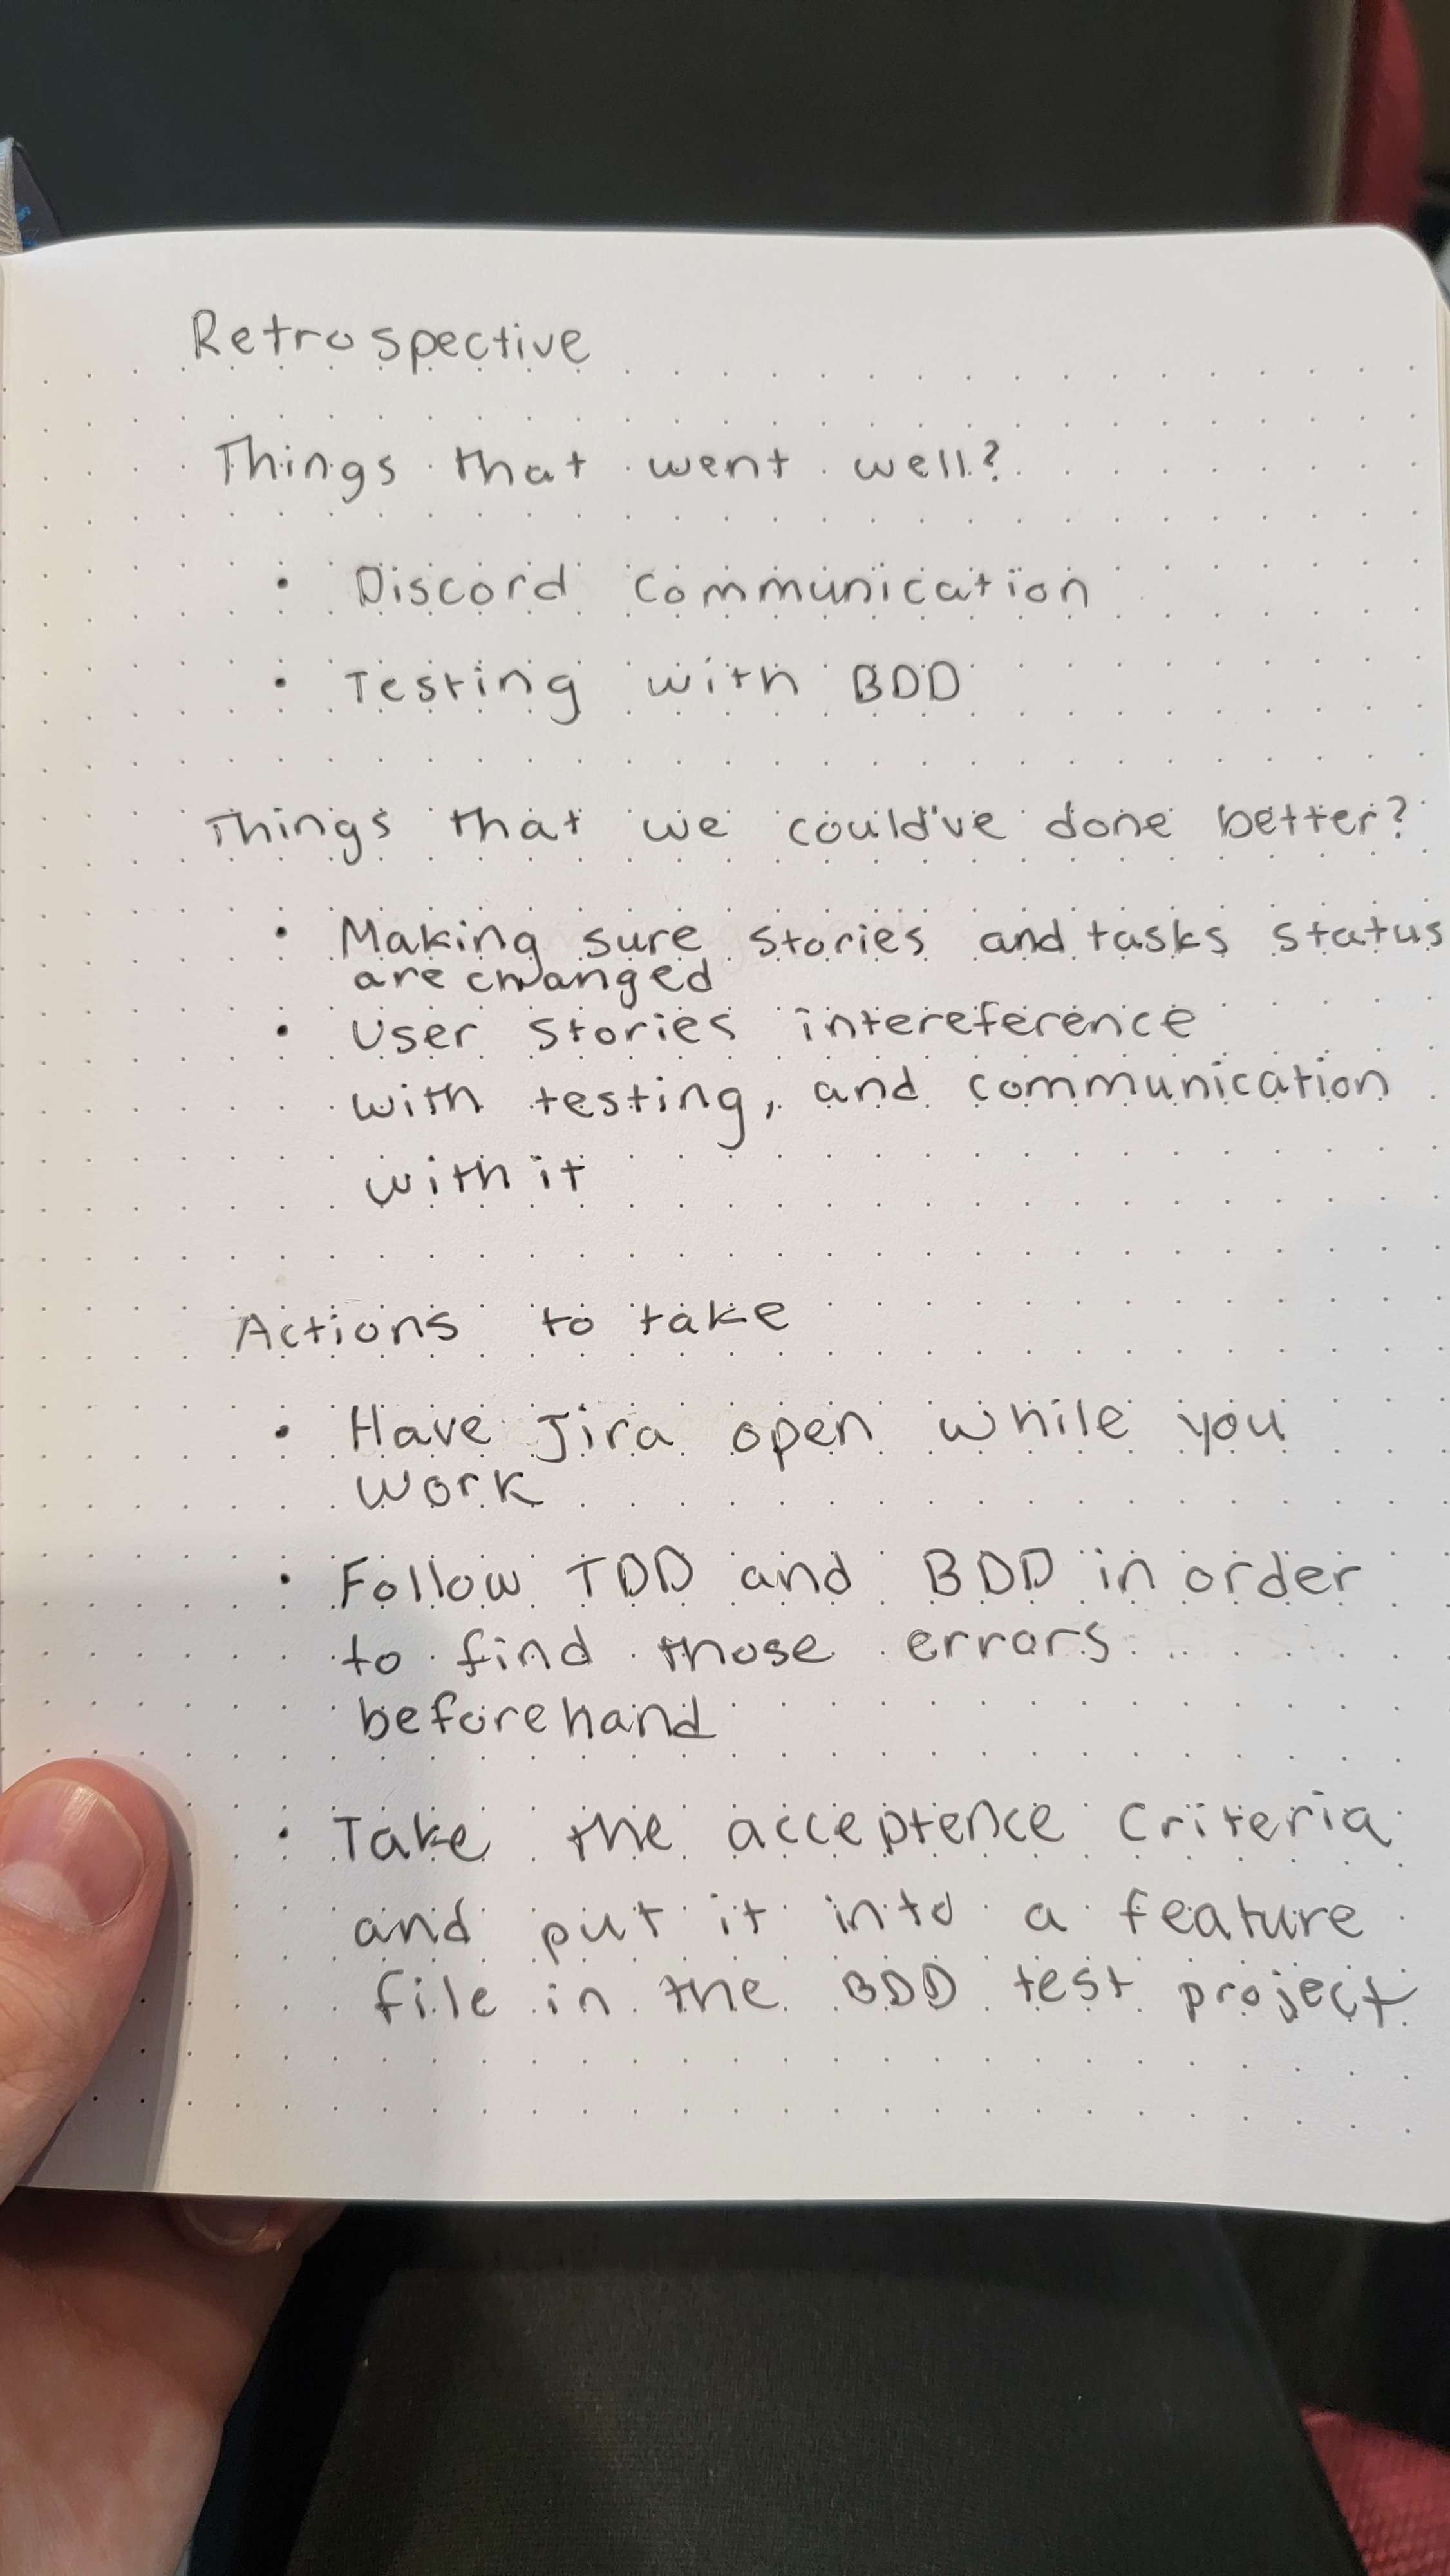 Retrospective
Things that went well?
• Discord communication
• Testing with BDD
Things that we could've done better?
• Making sure stories and tasks status
are changed
• User stories intereference
with testing, and communication
with it
Actions to take
• Have Jira open while you
work
• Follow TDD and BDD in order
to find those errors
beforehand
• Take the acceptence criteria
and put it into a feature
file in the BDD test project